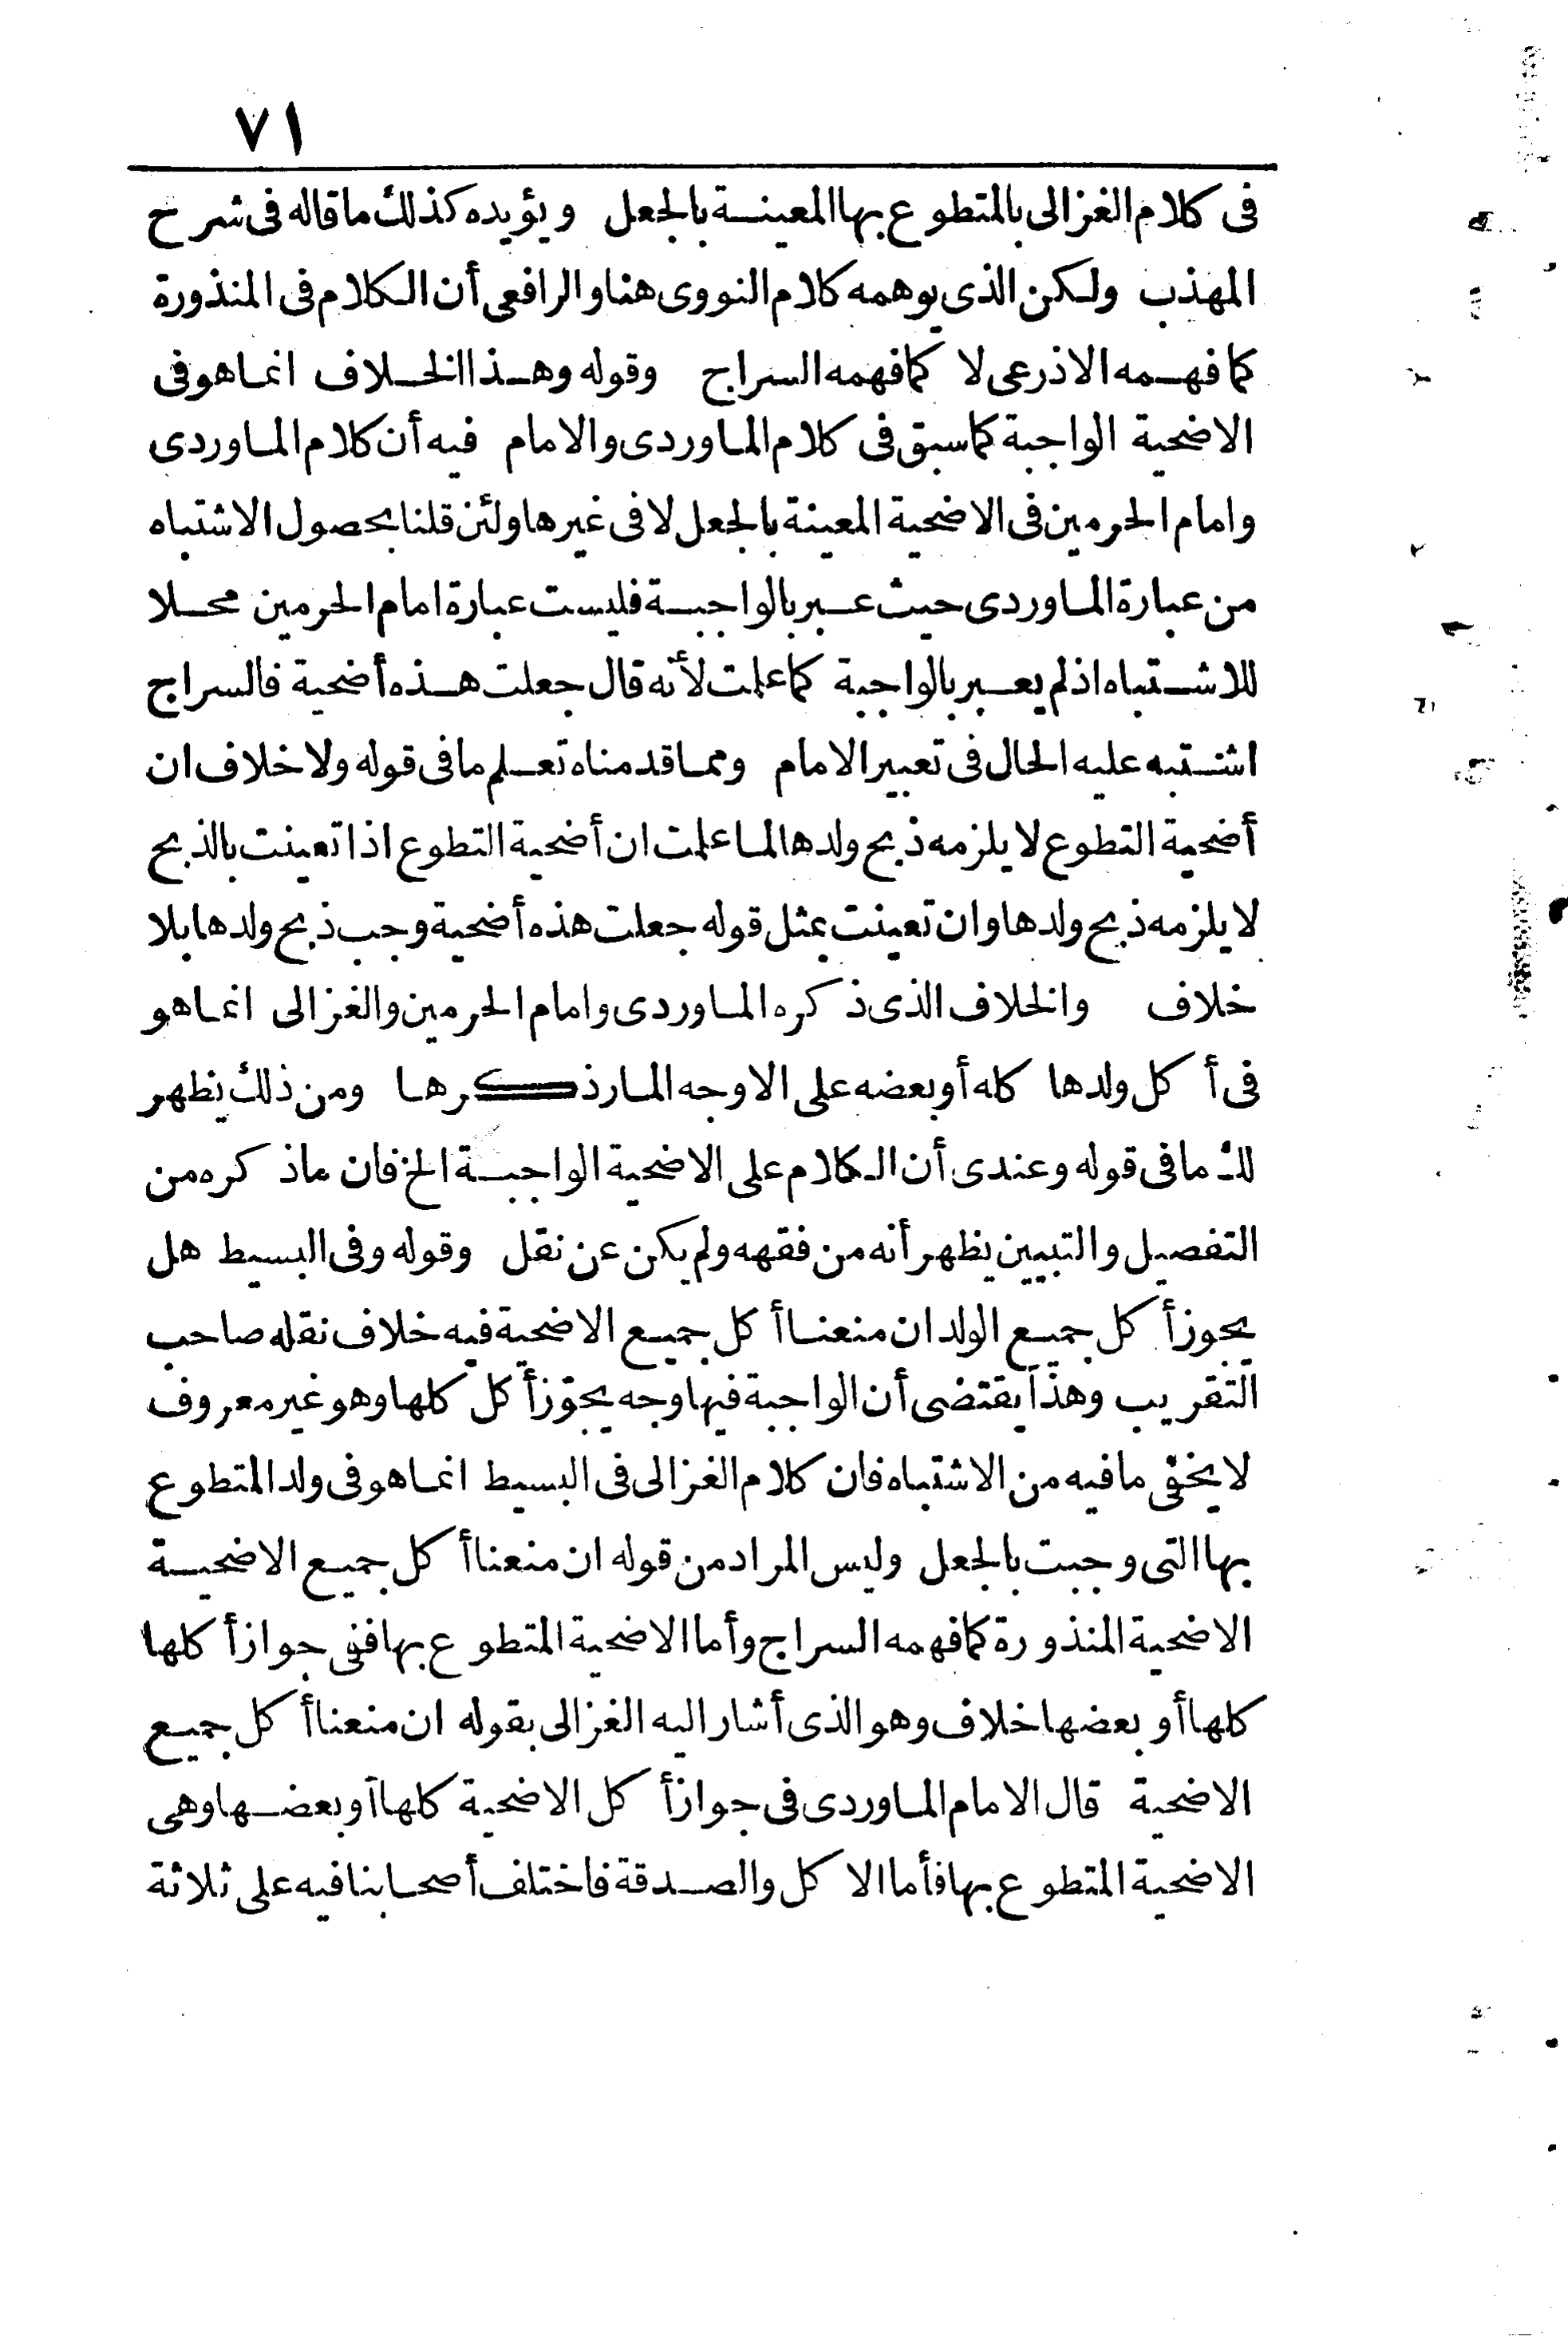 ٧١
فى كلام الغزالى بالمتطوع بها المعينة بالجعل ويؤيده كذلك ما قاله فى شرح
المهذب ولكن الذى يوهمه كلام النووى هنا والرافعى أن الكلام فى المنذورة
كما فهمه الاذرعى لا كما فهمه السراج وقوله وهذا الخلاف انما هو فى
الاضحية الواجبة كما سبق فى كلام الماوردى والامام فيه أن كلام الماوردى
وامام الحرمين فى الاضحية المعينة بالجعل لا فى غيرها ولئن قلنا بحصول الاشتباه
من عبارة الماوردى حيث عبر بالواجبة فليست عبارة امام الحرمين محلا
للاشتباه اذ لم يعبر بالواجبة كما علمت لأنه قال جعلت هذه أضحية فالسراج
اشتبه عليه الحال فى تعبير الامام ومما قدمناه تعلم ما فى قوله ولا خلاف ان
أضحية التطوع لا يلزمه ذبح ولدها لما علمت ان أضحية التطوع اذا تعينت بالذبح
لا يلزمه ذبح ولدها وان تعينت بمثل قوله جعلت هذه أضحية وجب ذبح ولدها بلا
خلاف والخلاف الذى ذكره الماوردى وامام الحرمين والغزالى انما هو
فى أكل ولدها كله أو بعضه على الاوجه المار ذكرها ومن ذلك يظهر
لك ما فى قوله وعندى أن الكلام على الاضحية الواجبة الخ فان ماذكره من
التفصيل والتبيين يظهر أنه من فقهه ولم يكن عن نقل وقوله وفى البسيط هل
يجوز أكل جميع الولد ان منعنا أكل جميع الاضحية فيه خلاف نقله صاحب
التقريب وهذا يقتضى أن الواجبة فيها وجه يجوّز أكل كلها وهو غير معروف
لا يخفى ما فيه من الاشتباه فان كلام الغزالى فى البسيط انما هو فى ولد المتطوع
بها التى وجبت بالجعل وليس المراد من قوله ان منعنا أكل جميع الاضحية
الاضحية المنذورة كما فهمه السراج وأما الاضحية المتطوع بها ففى جواز أكلها
كلها أو بعضها خلاف وهو الذى أشار اليه الغزالى بقوله ان منعنا أكل جميع
الاضحية قال الامام الماوردى فى جواز أكل الاضحية كلها أو بعضها وهى
الاضحية المتطوع بها فأما الاكل والصدقة فاختلف أصحابنا فيه على ثلاثة